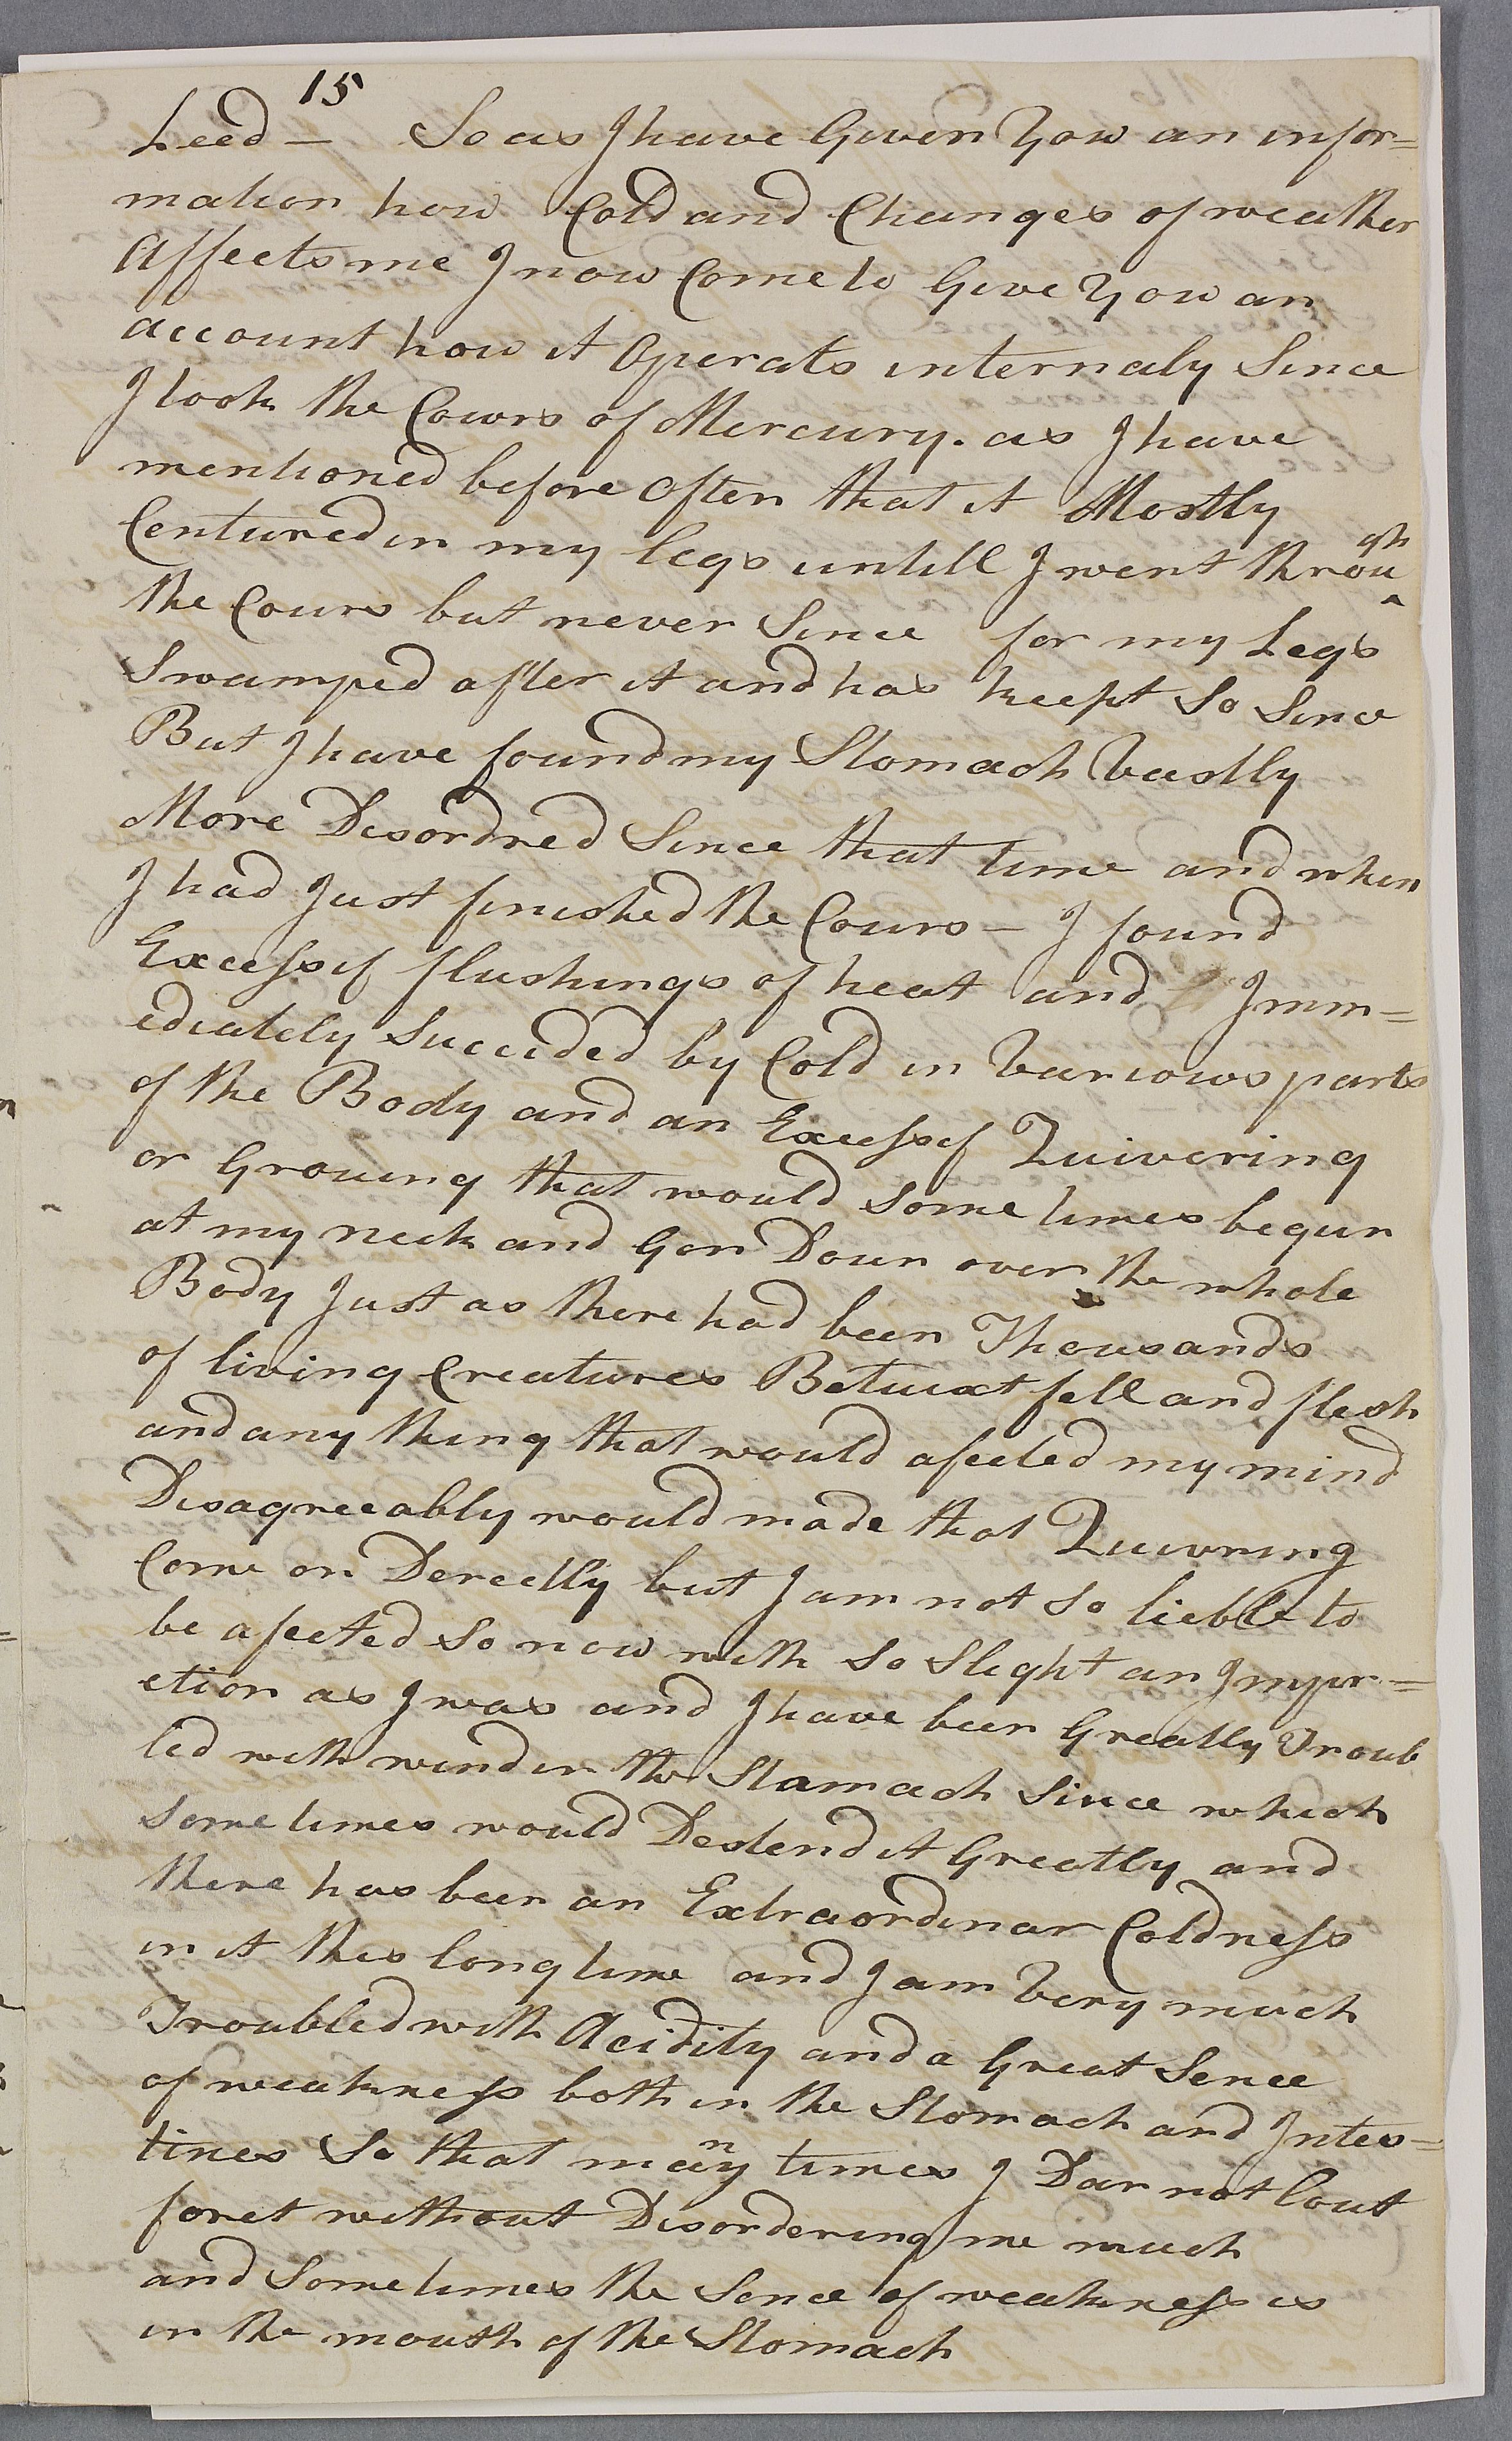 15
Leed — So as I have Given Yow an infor=
mation how Cold and Changes of weather
Affects me I now Come to Give Yow an
account how it Operats internaly Since
I took the Cowrs of Mercury. as I have
mentioned before often that it Mostly
Centured in my legs untill I went through
the Cours but never Since for my Legs
Swamped after it and has keept So Since
But I have found my Stomach Vastly
More Disordred Since that time and when
I had Just finished the Cours — I found
Excessif flushings of heat and Imm=
ediately Succeded by Cold in Variows parts
of the Body and an Excessif Quivering
or Grouing that would Some times begun
at my neck and Gon Doun over the whole
Body Just as there had been Thousands
of living Creatures Betuixt fell and flesh
and any thing that would afected my mind
Disagreeably would made that Quivring
Come on Derectly but I am not So lieble to
be afected So now with So Slight an Impr=
etion as I was and I have been Greatly Troub
led with wind in the Stomach Since which
Some times would Destend it Greatly and
there has been an Extraordinar Coldness
in it this long time and I am Very much
Troubled with Acidity and a Great Sence
of weakness both in the Stomach and Intes=
tines So that many times I Dar not Cout
foret without Disordering me much
and Some times the Sence of weakness is
in the mouth of the Stomach